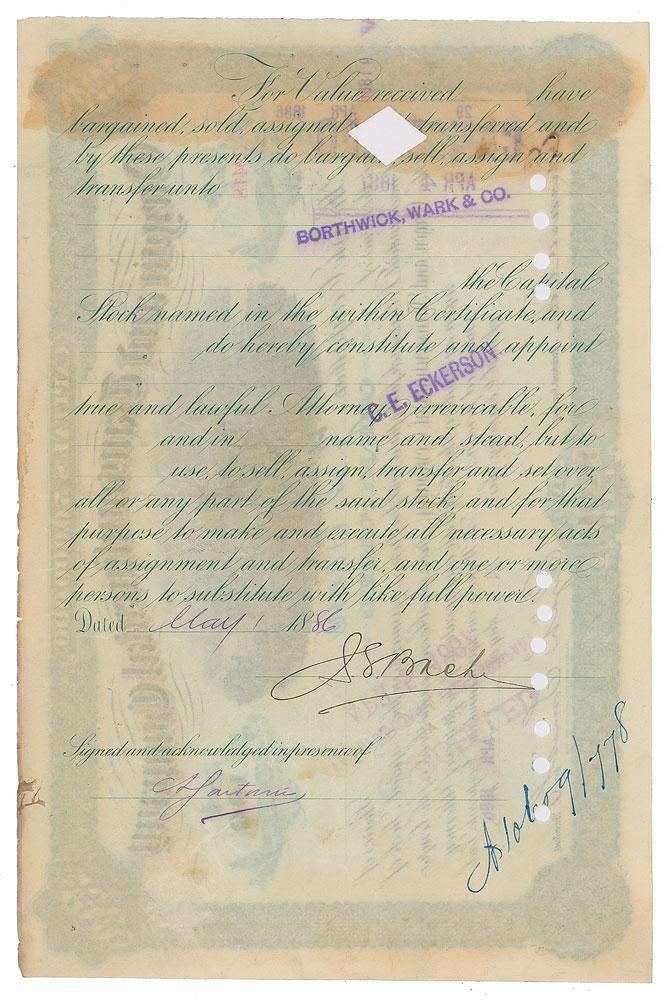 For Value received have
bargained, sold, assigned transferred and
by these presents do bargain, sell, assign and
transfer unto
BORTHWICK, WARK & CO.
the Capital
Stock named in the within Certificate, and
do hereby constitute and appoint
C. E. ECKERSON
true and lawful Attorney irrevocable, for
and in name and stead, but to
use, to sell, assign, transfer and set over
all or any part of the said stock, and for that
purpose to make and execute all necessary acts
of assignment and transfer, and one or more
persons to substitute with like full power.
Dated May 1 1886
J S Bache
Signed and acknowledged in presence of